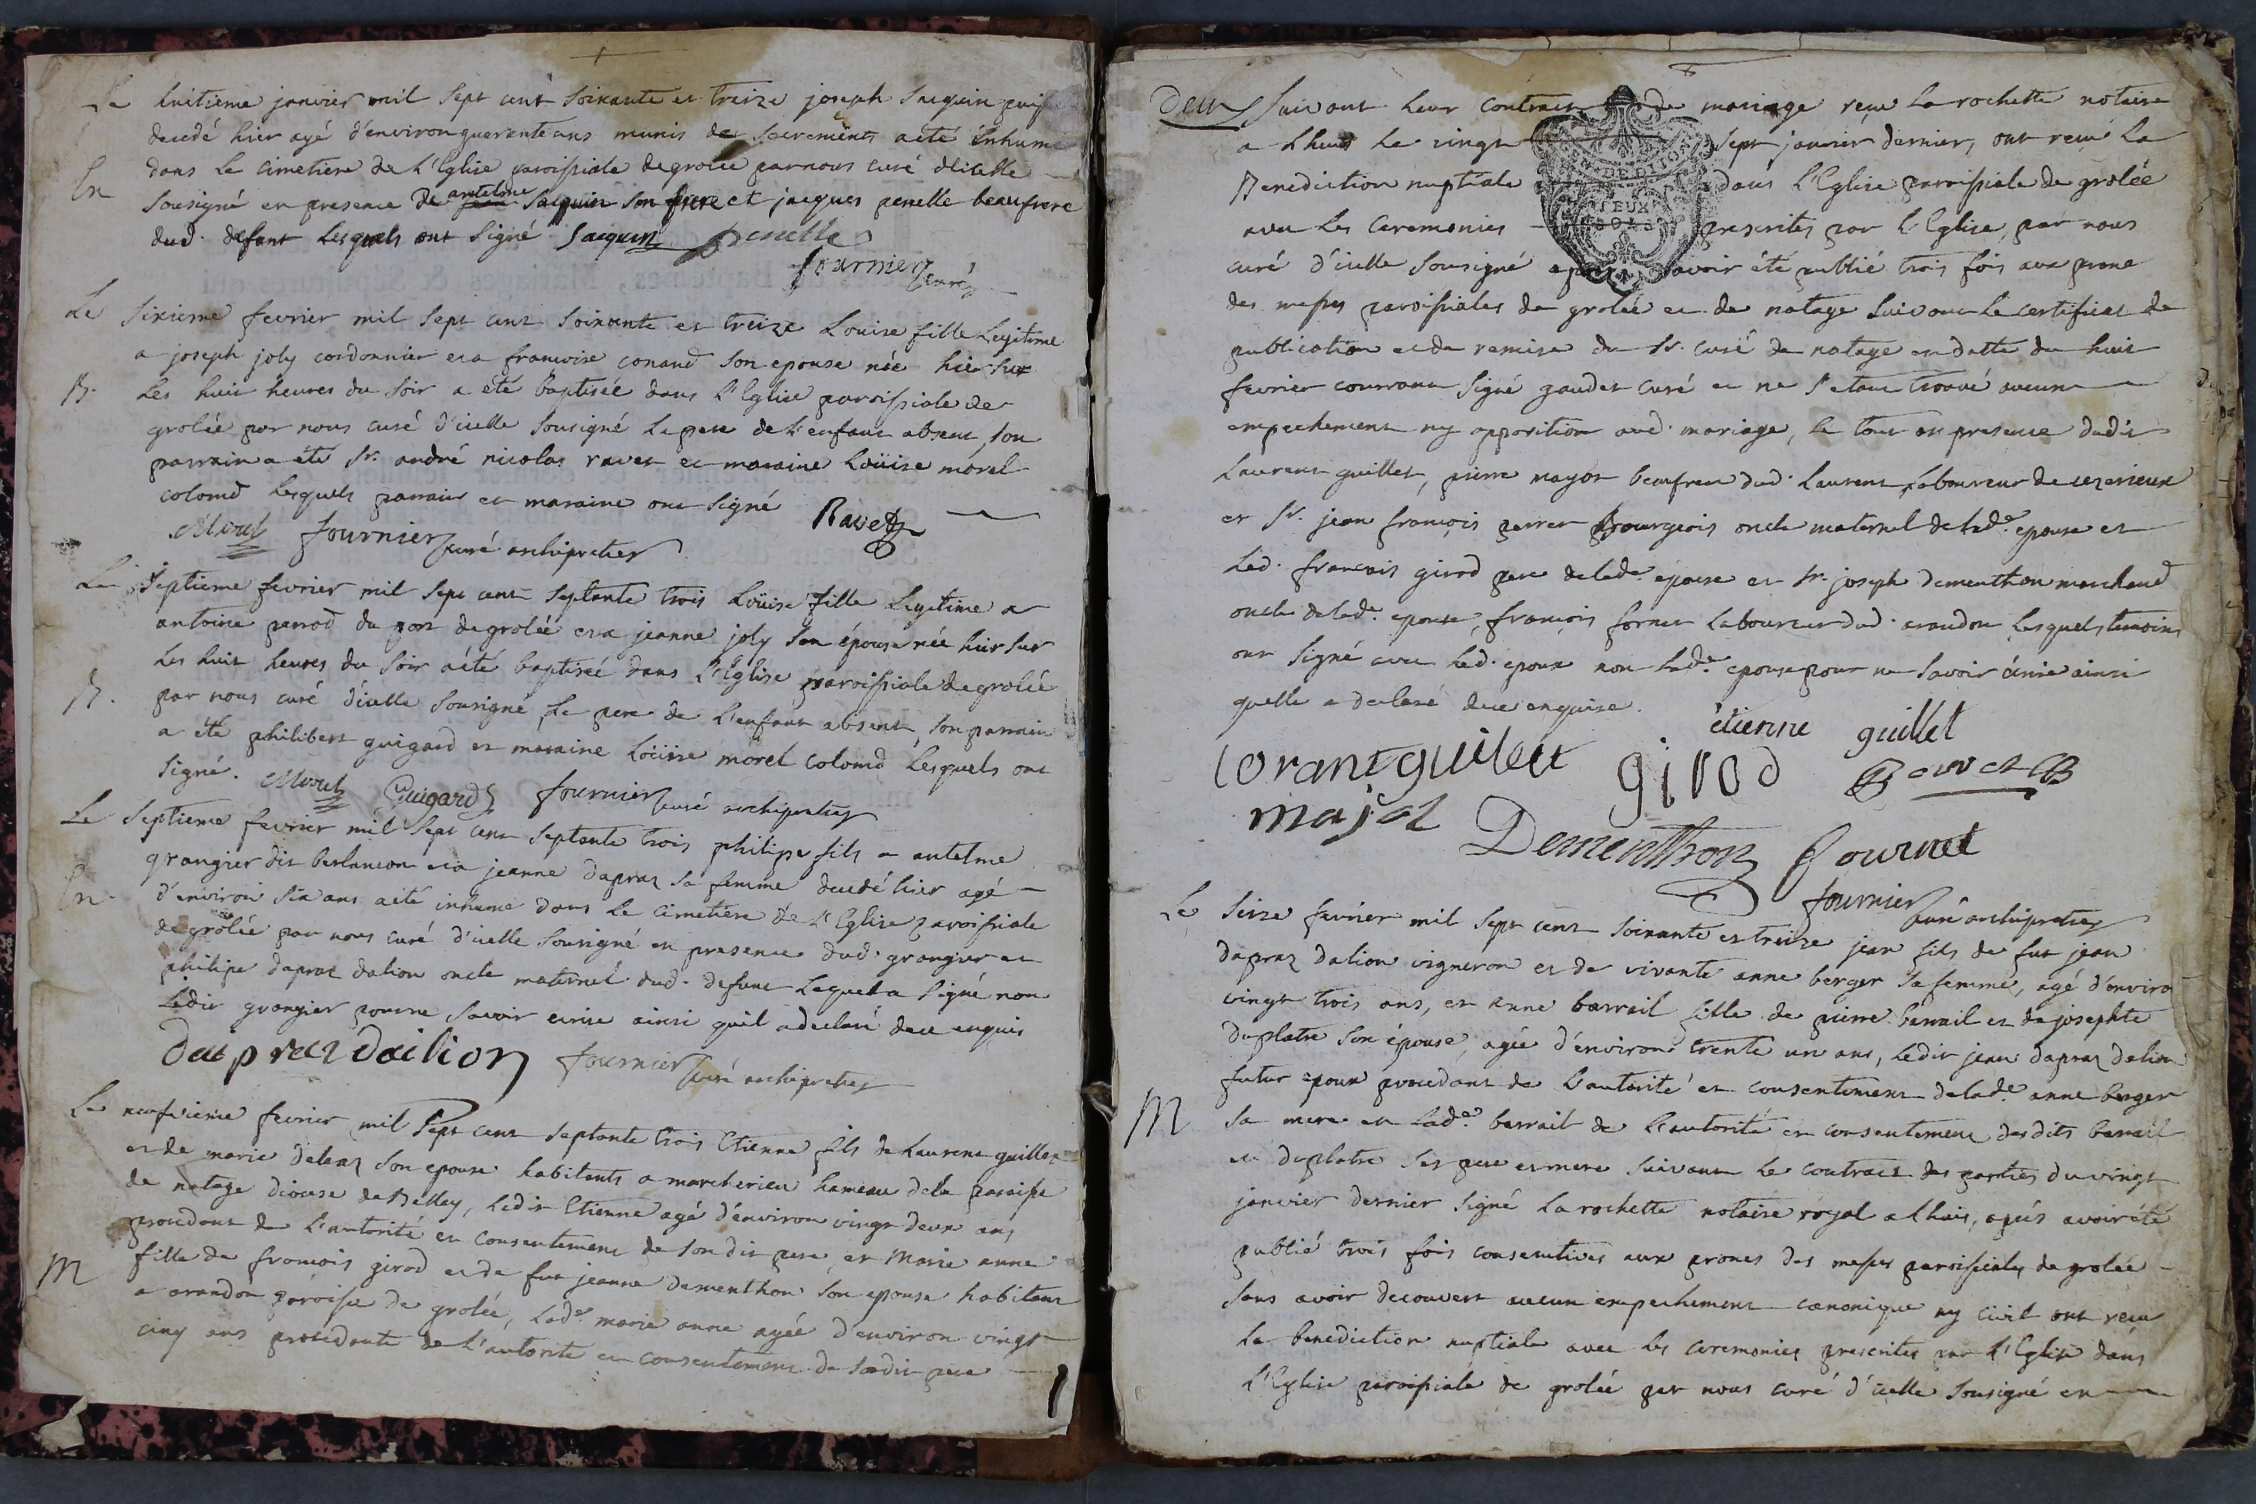 Le huitieme janvier mil sept cent soixante et treize joseph sacquin
decedé hier agé d'environ quarente ans munis des sacrements a eté inhumé
dans le cimetiere de l'Eglise paroissiale de grolée par nous curé d'icelle
En
sousigné en presence de antelme sacquin son frere et jacques penelle beaufrere
dud. defunt lesquels ont signé Jacquin penelle
fournier curé
Le sixieme fevrier mil sept cent soixante et treize Louise fille Legitime
a joseph joly cordonnier et a francoise conand son epouse née hier sur
B. les huit heures du soir a eté baptisée dans l'Eglise paroissiale de
grolée par nous curé d'icelle sousigné le pere de l'enfant absent, son
parrain a été Sr. andré nicolas ravet et maraine Loüise morel
colomd lesquels parrain et maraine ont signé Ravet
Morel fournier curé archipretre
Le septieme fevrier mil sept cent septante trois Loüise fille Legitime a
antoine perrod du port de grolée et a jeanne joly son épouse née hier sur
les huit heures du soir a été baptisée dans l'Eglise paroissiale de grolée
B. par nous curé d'icelle sousigné, Le pere de l'enfant absent, son parrain
a été philibert guigard et maraine Loüise morel colomd Lesquels ont
signé. Morel Guigard fournier curé archipretre
Le septieme fevrier mil sept cent septante trois philipe fils a antelme
grangier dit berlancon et a jeanne dapraz sa femme decedé hier agé
En. d'environ six ans a eté inhumé dans le cimetiere de l'Eglise paroissiale
de grolée par nous curé d'icelle sousigné en presence dud. grangier et
philipe dapraz dalion oncle maternel dud. defunt lequel a signé non
ledit grangier pour ne savoir ecrire ainsi quil a declaré de ce enquis
dapraz dailion fournier curé archipretre
Le neufvieme fevrier mil sept cent septante trois Etienne fils de Laurent guillet
et de marie deleaz son epouse habitants a marcherieu hameau de la paroisse
de natage diocese de Belley, ledit Etienne agé d'environ vingt deux ans
procedant de l'autorité et consentement de son dit pere, et Marie anne
M fille de francois girod et de fut jeanne dementhon son epouse habitant
a arandon paroisse de grolée, lade. marie anne agée d'environ vingt
cinq ans procedante de l'autorité et consentement de sondit pere
1
Deux suivant leur contract de mariage reçu La rochette notaire
a Lhuis le vingt sept janvier dernier, ont recu la
Benediction nuptiale dans l'Eglise paroissiale de grolée
avec les ceremonies prescrites par l'Eglise, par nous
curé d'icelle sousigné apres avoir été publié trois fois aux prone
des messes paroissiales de grolée et de natage suivant le certificat de
publication et de remise du Sr. curé de natage en datte du huit
fevrier courrant signé gaudet curé et ne s'etant trouvé aucun
empechement ny opposition aud. mariage, le tout en presence dudit
Laurent guillet, pierre mayot beaufrere dud. Laurent Laboureur de
et Sr. jean françois perret Bourgeois oncle maternel de lade. epouse et
led. francois girod pere de lade. epouse et Sr. joseph dementhon marchand
oncle de lade. epouse, françois fornet Laboureur dud. arandon lesquels temoins
ont signé avec led. epoux non lade. epouse pour ne savoir écrire ainsi
quelle a declaré de ce enquise. étienne guillet
lorant guillet girod
majot Dementhon fournet
fournier curé archipretre
Le seize fevrier mil sept cent soixante et treize jean fils de fut jean
dapraz dalion vigneron et de vivante anne berger sa femme, agé d'environ
vingt trois ans, et anne barrail fille de pierre barrail et de josephte
duplatre son épouse, agée d'environ trente un ans, ledit jean dapraz dalion
futur epoux procedant de l'autorité et consentement de lade. anne berger
M sa mere et lade. barrail de l'autorité et consentement desdits barrail
et duplatre ses pere et mere suivant le contract des parties du vingt
janvier dernier signé la rochette notaire royal a Lhuis, apés avoir été
publié trois fois consecutives aux prones des messes paroissiales de grolée
sans avoir decouvert aucun empechement canonique ny civil ont recu
la benediction nuptiale avec les ceremonies prescrites par l'Eglise dans
l'Eglise paroissiale de grolée par nous curé d'icelle sousigné en